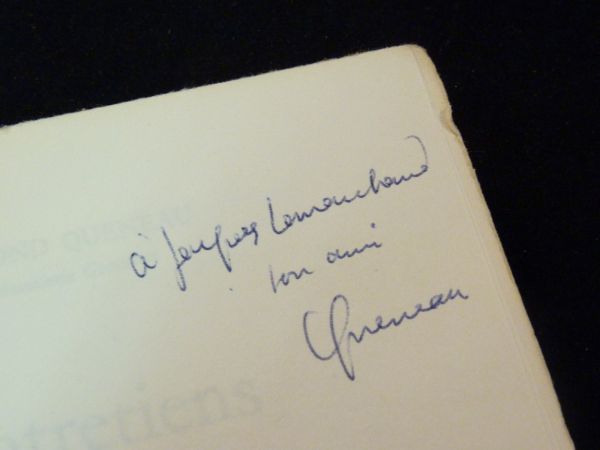 à Jacques Lemarchand
son ami
Queneau
OND QUENEAU
ntretiens